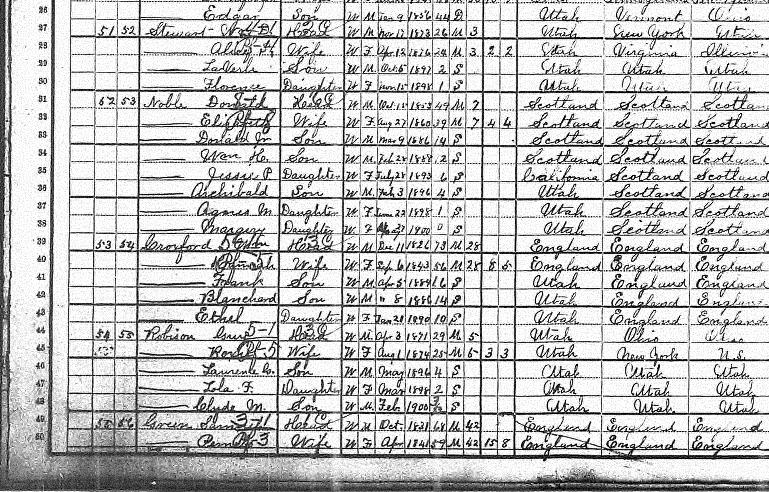 26 Edgar Son W M Jan 9 1856 44 D Utah Vermont Ohio
27 51 52 Stewart Head W M Nov 17 1873 26 M 3 Utah New York Utah
28 Wife W F Apr 12 1876 24 M 3 2 2 Utah Virginia Illinois
29 LaVerle Son W M Oct 5 1897 2 S Utah Utah Utah
30 Florence Daughter W F Nov 15 1898 1 S Utah Utah Utah
31 52 53 Noble Donald Head W M Oct 18 49 M 7 Scotland Scotland Scotland
32 Wife W F Aug 27 1860 39 M 7 4 4 Scotland Scotland Scotland
33 Donald Jr Son W M Mar 9 1886 14 S Scotland Scotland Scotland
34 Wm H. Son W M Feb 28 1888 2 S Scotland Scotland Scotland
35 Jessie P Daughter W F July 28 1893 6 S California Scotland Scotland
36 Archibald Son W M Feb 3 1896 4 S Utah Scotland Scotland
37 Agnes M Daughter W F June 22 1898 1 S Utah Scotland Scotland
38 Margery Daughter W F 1900 0 S Utah Scotland Scotland
39 53 54 Crorford Head W M Dec 11 1826 73 M 28 England England England
40 Hannah Wife W F Sep 6 1843 56 M 28 8 5 England England England
41 Frank Son W M Apr 5 1884 16 S Utah England England
42 Blanchard Son W M " 8 1886 14 S Utah England England
43 Ethel Daughter W F Jan 28 1890 10 S Utah England England
44 54 55 Robison 5-1 Head W M Apr 3 1871 29 M 5 Utah Ohio Ohio
45 Wife W F Aug 1 1874 25 M 5 3 3 Utah New York U.S.
46 Laurence Son W M May 1896 4 S Utah Utah Utah
47 Lola F. Daughter W F Mar 1898 2 S Utah Utah Utah
48 Clyde M. Son W M Feb 1900 3/12 S Utah Utah Utah
49 55 56 Green Head W M Oct. 1831 68 M 42 England England England
50 Wife W F Apr 1841 59 M 42 15 8 England England England